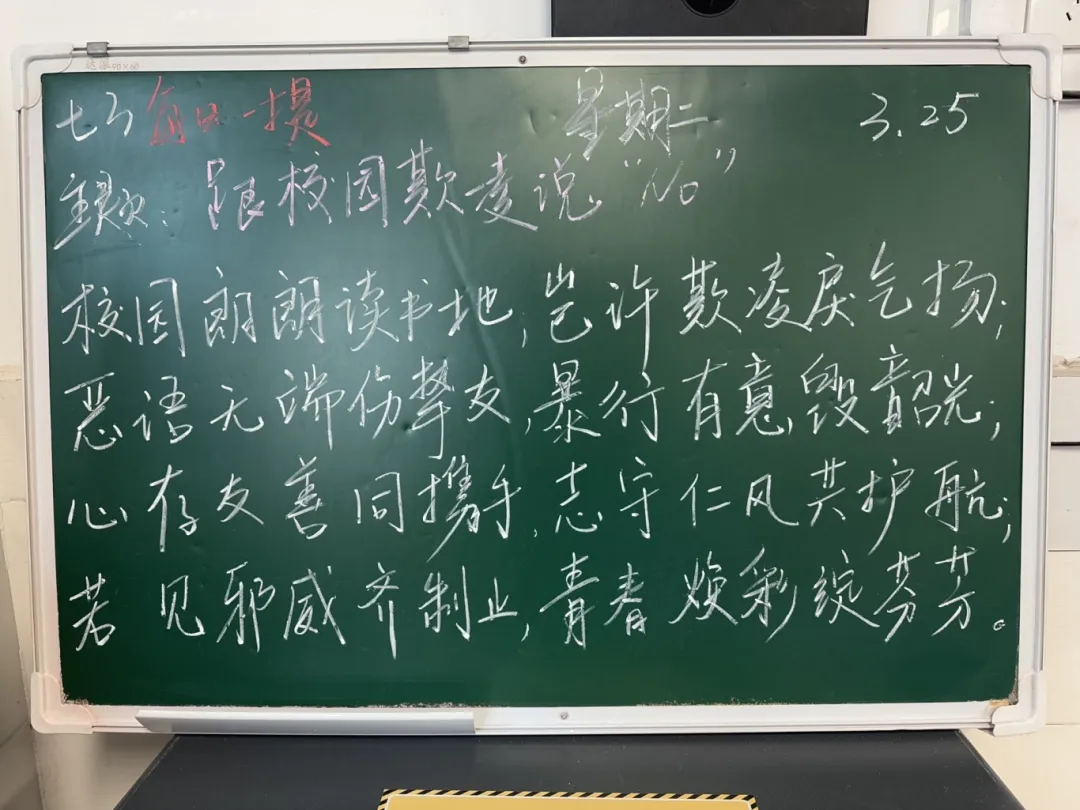 90×60
七3 每日一提 星期二 3.25
主题：跟校园欺凌说“No”
校园朗朗读书地,岂许欺凌戾气扬;
恶语无端伤挚友,暴行有意毁韶光;
心存友善同携手,志守仁风共护航;
若见邪威齐制止,青春焕彩绽芬芳。